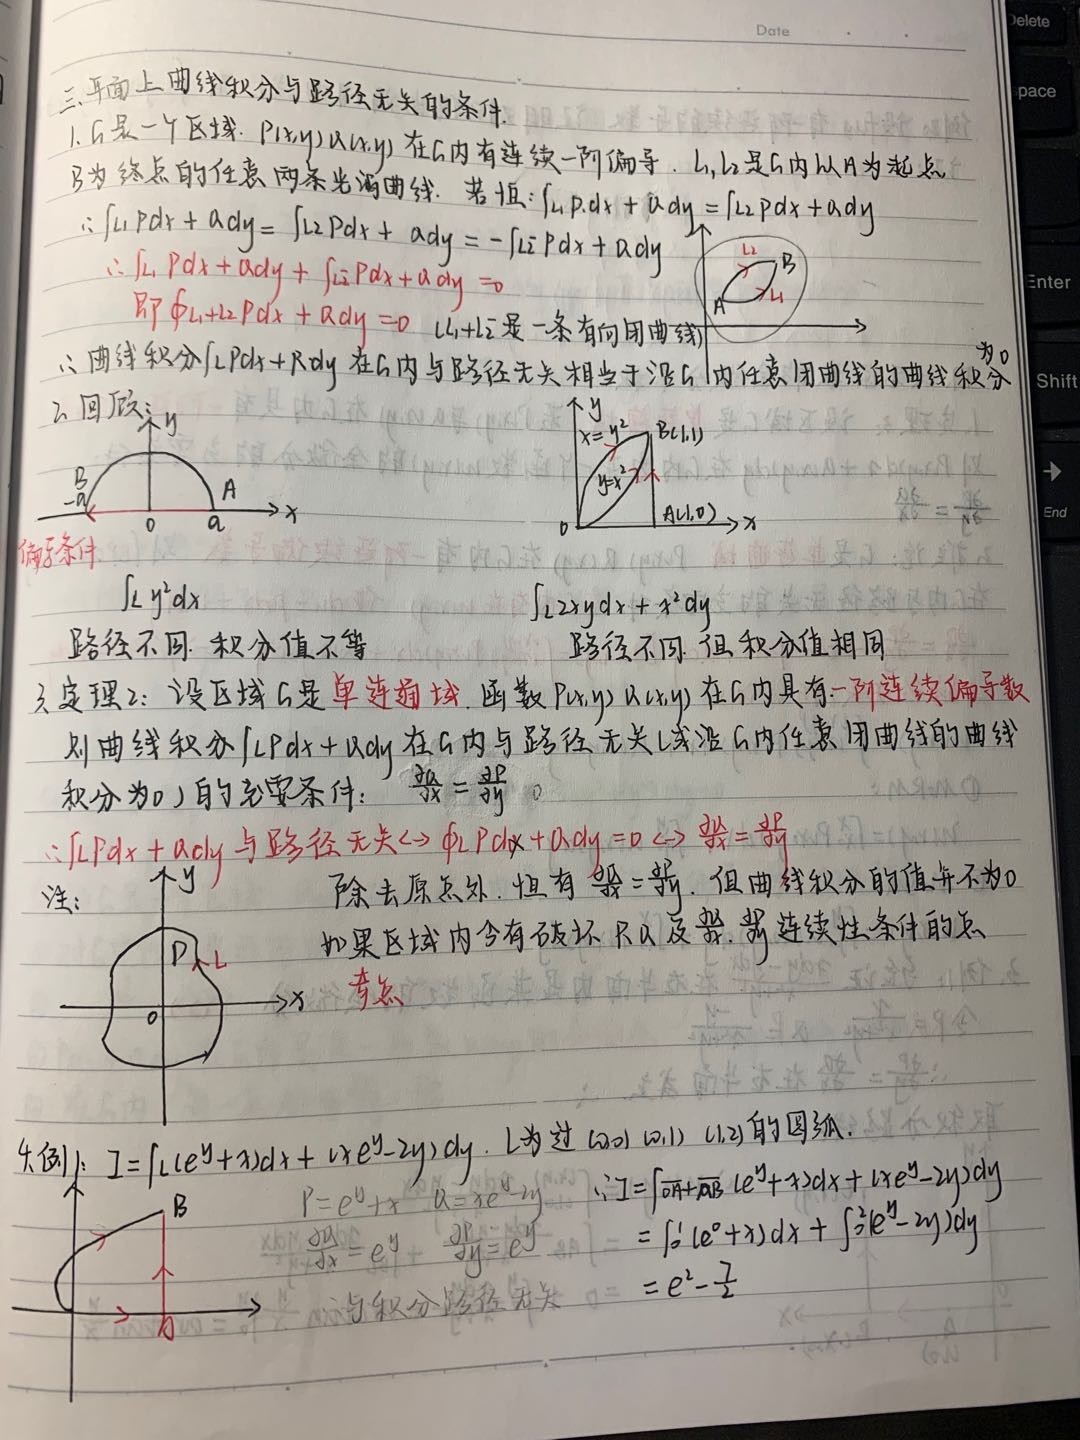 Date
三、平面上曲线积分与路径无关的条件.
1. G是一个区域. P(x,y) Q(x,y) 在G内有连续一阶偏导. L1, L2是G内以A为起点
B为终点的任意两条光滑曲线. 若恒: ∫L1 P.dx + Qdy = ∫L2 Pdx + Qdy
∴ ∫L1 Pdx + Qdy = ∫L2 Pdx + Qdy = -∫L2⁻ Pdx + Qdy
∴ ∫L1 Pdx + Qdy + ∫L2⁻ Pdx + Qdy = 0
即 ∮L1+L2 Pdx + Qdy = 0 (L1+L2⁻是一条有向闭曲线)
L2 B
A L1
∴ 曲线积分∫L Pdx + Rdy 在G内与路径无关相当于沿G内任意闭曲线的曲线积分为0
2. 回顾:
y
B A
-a 0 a x
y
x=y² B(1,1)
y=x²
0 A(1,0) x
偏导条件
∫L y²dx ∫L 2xydx + x²dy
路径不同. 积分值不等 路径不同. 但积分值相同
3. 定理2: 设区域G是单连通域. 函数P(x,y) Q(x,y) 在G内具有一阶连续偏导数
则曲线积分∫L Pdx + Qdy 在G内与路径无关(或沿G内任意闭曲线的曲线
积分为0)的充要条件: ∂Q/∂x = ∂P/∂y
∴ ∫L Pdx + Qdy 与路径无关 <-> ∮L Pdx + Qdy = 0 <-> ∂Q/∂x = ∂P/∂y
注:
y
D L
0 x
除去原点外. 恒有 ∂Q/∂x = ∂P/∂y. 但曲线积分的值并不为0
如果区域内含有破坏P.Q及∂Q/∂x. ∂P/∂y 连续性条件的点
奇点
4. 例1: I = ∫L (e^y + x)dx + (xe^y - 2y)dy. L为过(0,0) (0,1) (1,2)的圆弧.
B
A
P = e^y + x Q = xe^y - 2y
∂Q/∂x = e^y ∂P/∂y = e^y
∴ 与积分路径无关
∴ I = ∫OA+AB (e^y + x)dx + (xe^y - 2y)dy
= ∫0^1 (e^0 + x)dx + ∫0^2 (e^y - 2y)dy
= e² - 7/2
Delete
Space
Enter
Shift
→
End